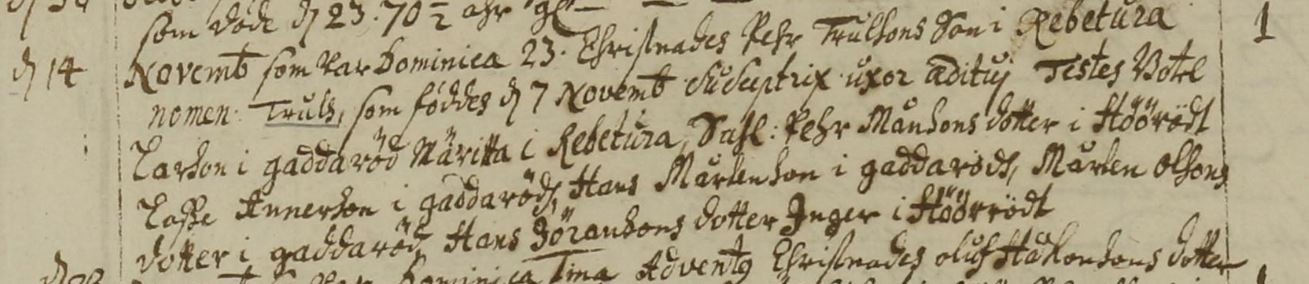 som døde d 23. 70½ ahr gl
d 14 Novemb som var Dominica 23. Christnades Pehr Trulsons Son i Rebetura 1
nomen Truls, som föddes d 7 Novemb Susceptrix uxor æditui Testes Botel
Larson i gaddaröd Märitta i Rebetura, Sahl: Pehr Månsons dotter i Höörödt
Lasse Annerson i gaddaröd, Hans Mårtenson i gaddaröd, Mårten Olsons
dotter i gaddaröd Hans Jöransons dotter Inger i Höörrödt
Dominica 1ma Adventq Christnades oluf Håkonsons dotter